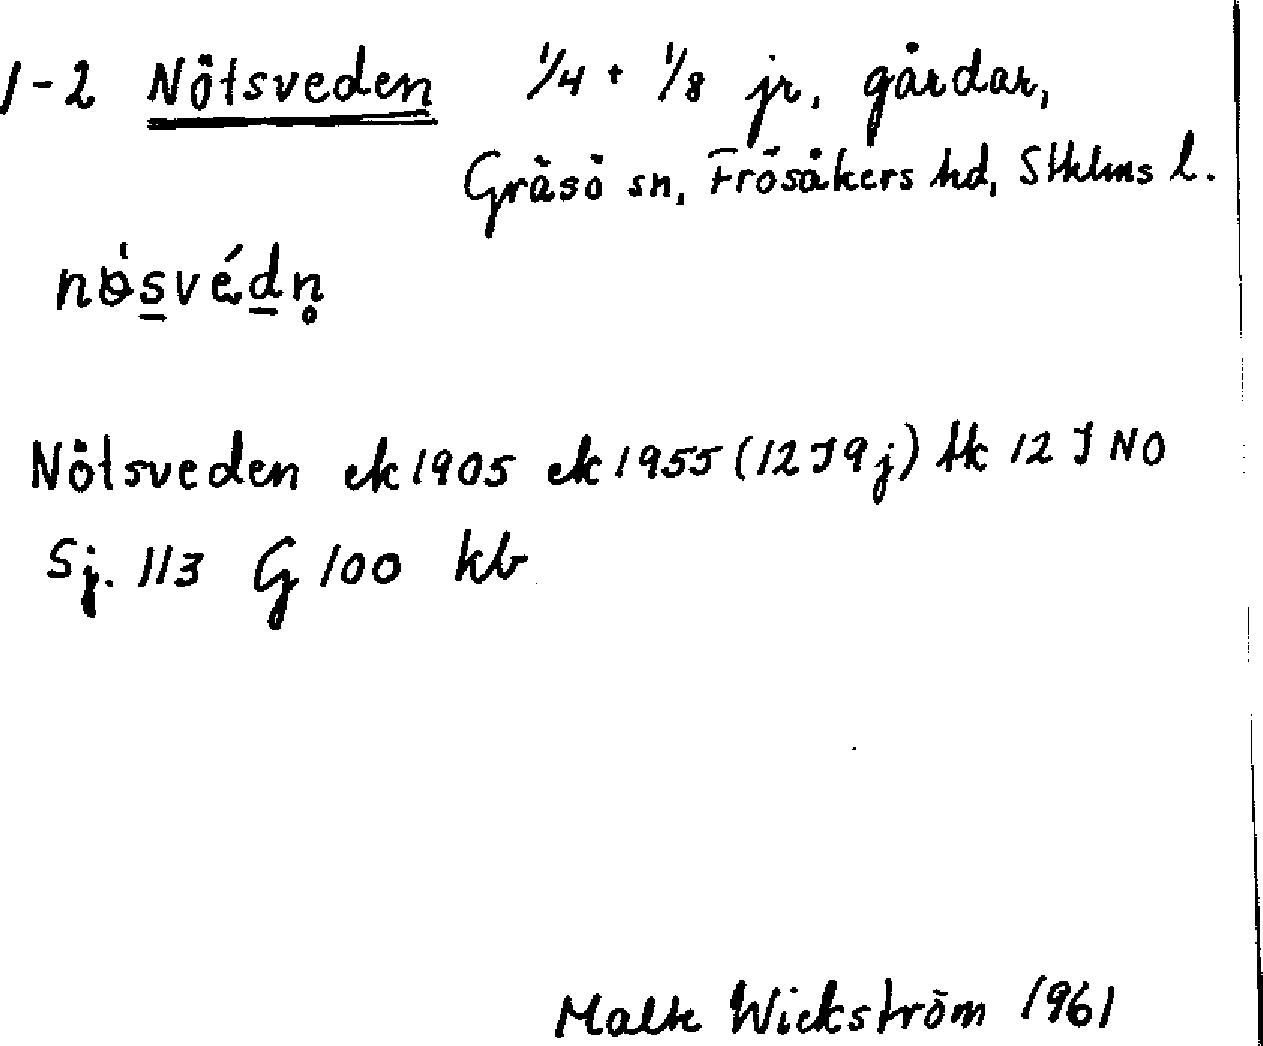 1-2 Nötsveden 1/4 + 1/8 jr, gårdar,
Gräsö sn, Frösåkers hd, Sthlms l.
nɵ̀svédn̥
Nötsveden ek 1905 ek 1955 (12 I 9 j) tk 12 I NO
Sj. 113 G 100 kb
Malte Wickström 1961